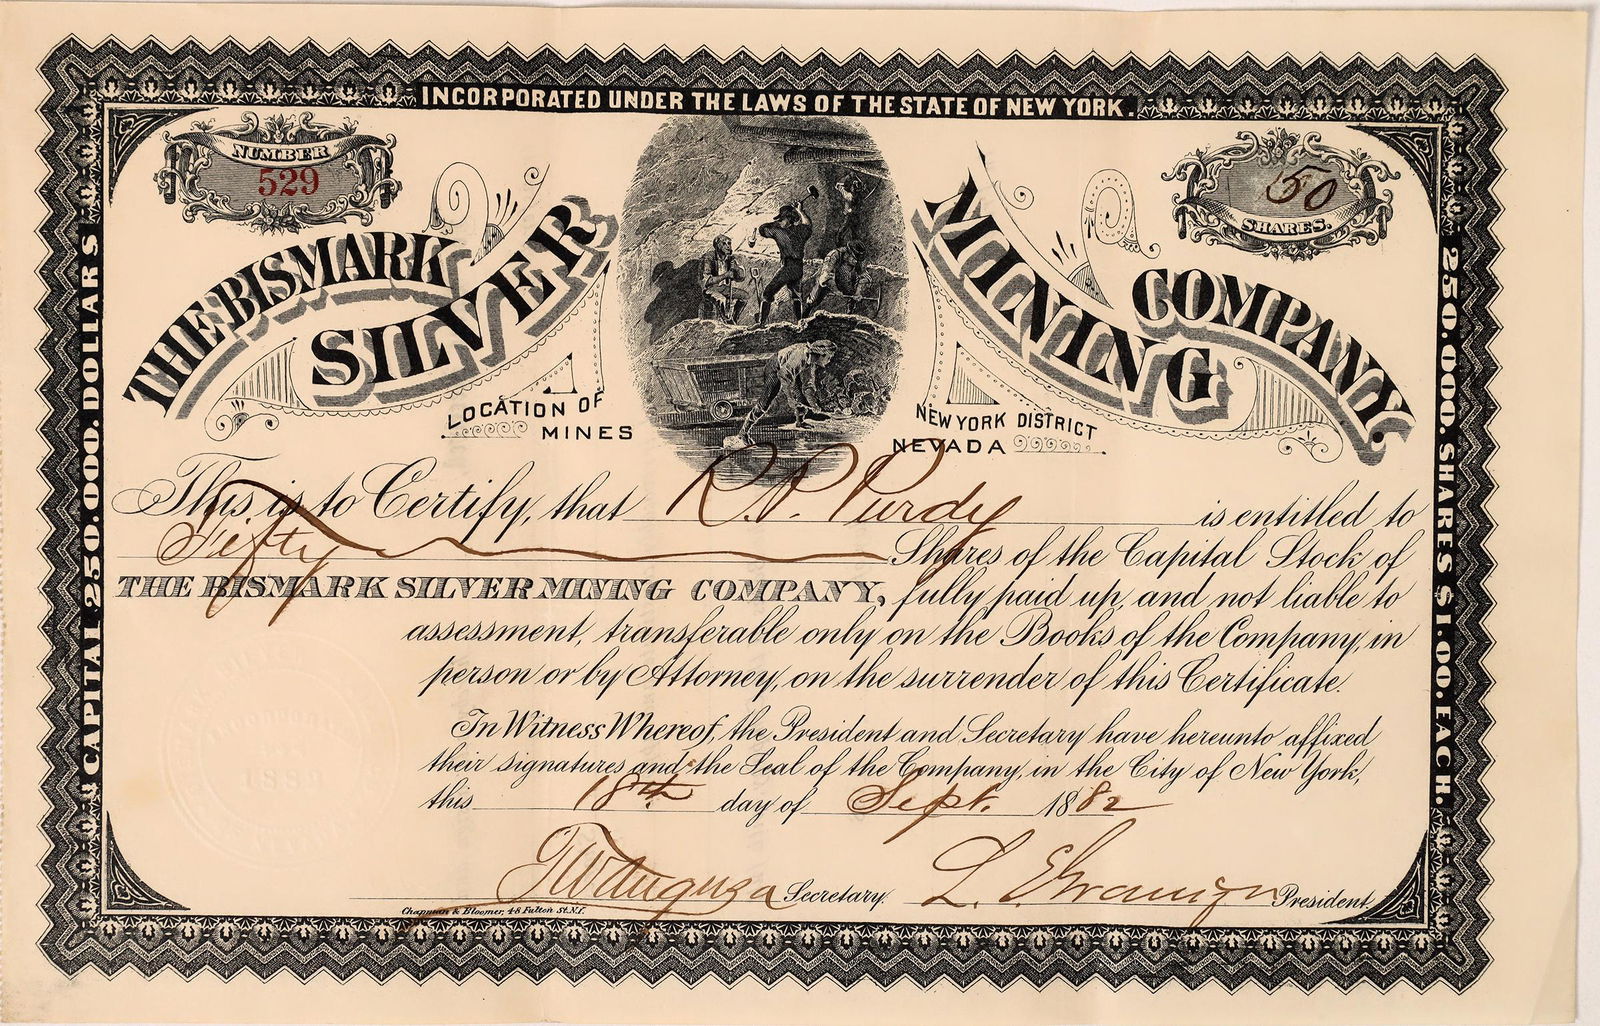 INCORPORATED UNDER THE LAWS OF THE STATE OF NEW YORK.
NUMBER
529
50
SHARES.
THE BISMARK
SILVER
MINING
COMPANY.
LOCATION OF
MINES
NEW YORK DISTRICT
NEVADA
CAPITAL 250.000. DOLLARS
250.000. SHARES $1.00. EACH.
This is to Certify, that R. P. Purdy is entitled to
Fifty Shares of the Capital Stock of
THE BISMARK SILVER MINING COMPANY, fully paid up, and not liable to
assessment, transferable only on the Books of the Company, in
person or by Attorney, on the surrender of this Certificate.
In Witness Whereof, the President and Secretary have hereunto affixed
their signatures and the Seal of the Company, in the City of New York,
this 18th day of Sept. 1882
Secretary.
L. President.
Chapman & Bloomer, 48 Fulton St. N.Y.